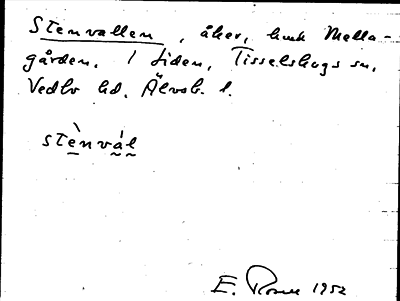 Stenvallen, åker, hmk Mella-
gården. 1 Liden, Tisselskogs sn,
Vedbo hd. Älvsb. l.
stènvál
E. 1952